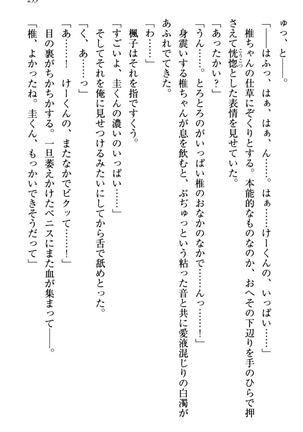 ゅっ、と――。
「――はふっ、はぁ、はぁ、ん……。はぁ……けーくんの、いっぱい……」
椎ちゃんの仕草にぞくりとする。本能的なものなのか、おへその下辺りを手のひらで押
さえて恍惚とした表情を見せていた。
「あったかい？」
「うん……。とろとろのがいっぱい椎のおなかのなかで……んっ……！」
身震いする椎ちゃんが息を飲むと、ぶぢゅっという粘った音と共に愛液混じりの白濁が
あふれでてきた。
「わ……」
楓子はそれを指ですくう。
「すごいよ、圭くんの濃いのいっぱい……」
そしてそれを俺に見せつけるみたいにしてから舌で舐めとった。
「く、あっ……」
「あ……！　けーくんの、またなかでビクッて……！」
目の裏がちかちかする。一旦萎えかけたペニスにまた血が集まって――。
「椎、よかったね。圭くん、もっかいできそうだって」